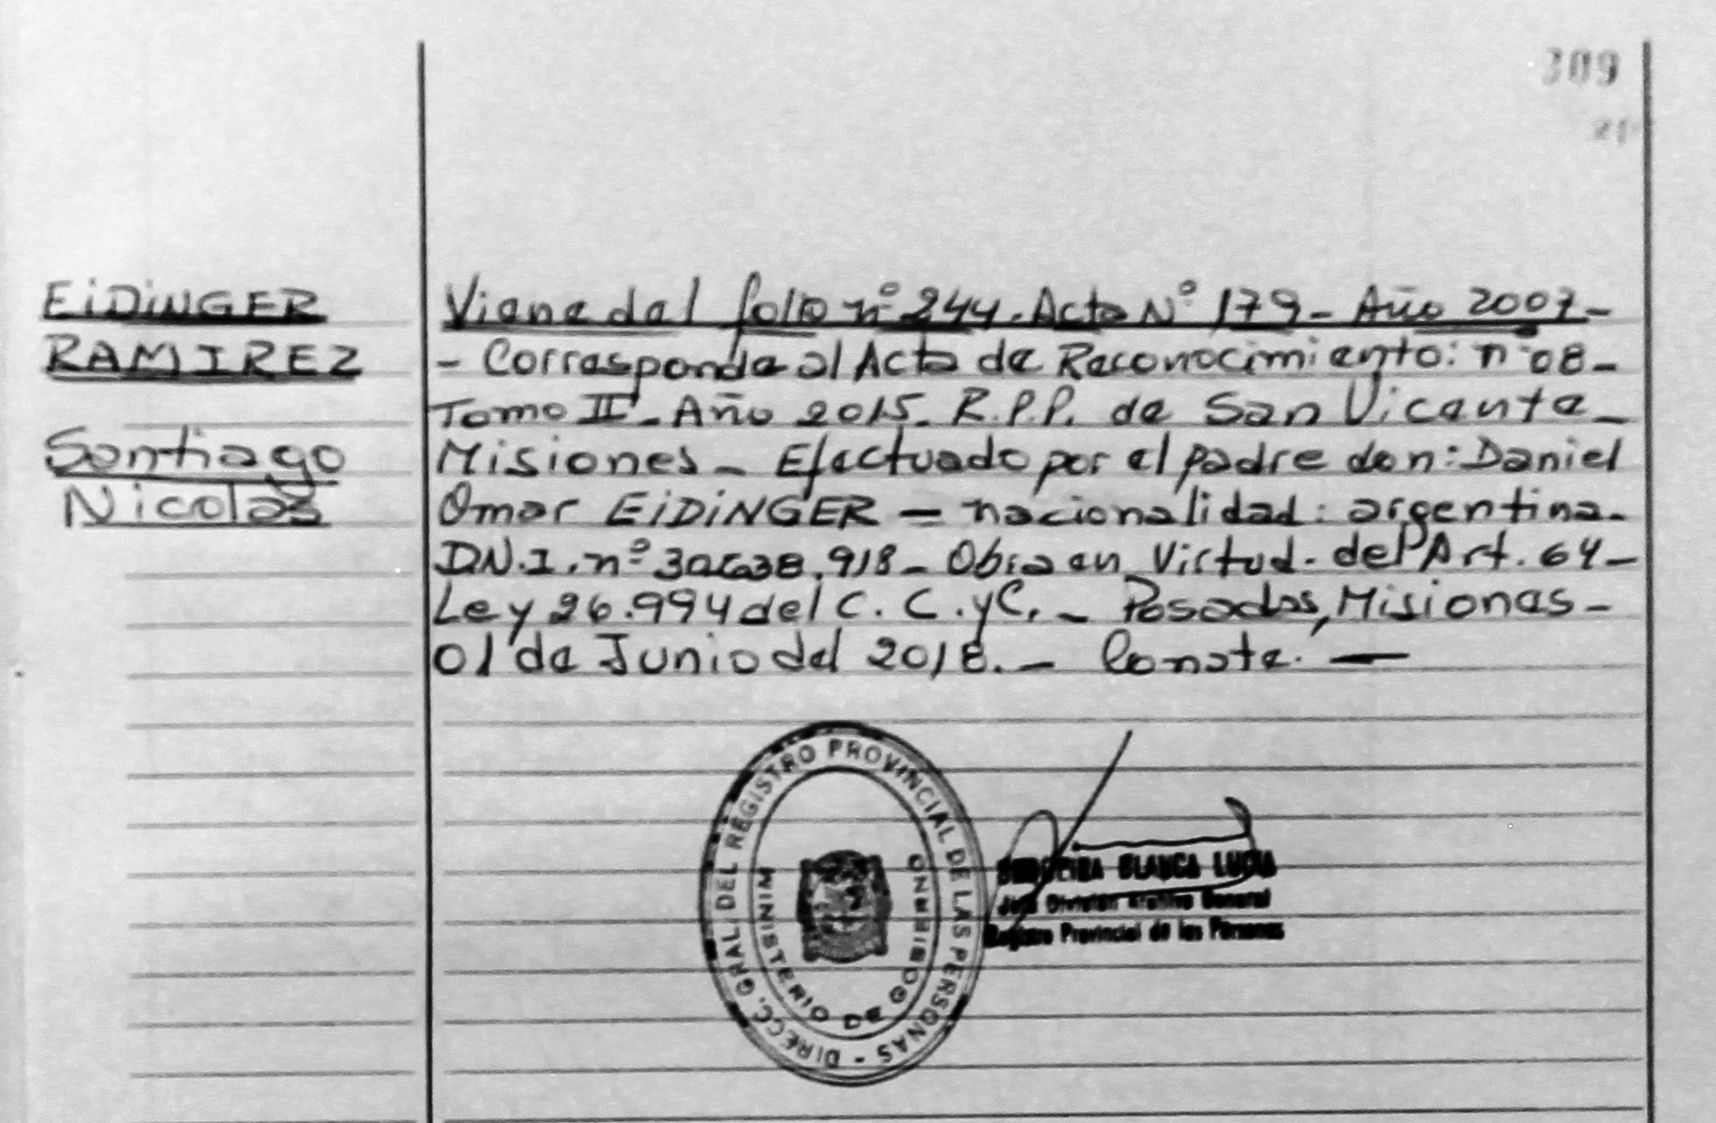 309
EiDiNGER
RAMIREZ
Santiago
Nicolás
Viene del folio nº 244. Acta Nº 179 - Año 2007 -
- Corresponde al Acta de Reconocimiento: nº 08 -
Tomo II - Año 2015. R.P.P. de San Vicente -
Misiones - Efectuado por el padre don: Daniel
Omar EiDiNGER - nacionalidad: argentina -
D.N.I. nº 918 - Obra en Virtud. del Art. 64 -
Ley 26.994 del C. C. y C. - Posadas, Misiones -
01 de Junio del 2018. - Conste. —
DIRECC. GRAL. DEL REGISTRO PROVINCIAL DE LAS PERSONAS -
MINISTERIO DE GOBIERNO
BLANCA LUCIA
Jefe División Archivo General
Registro Provincial de las Personas